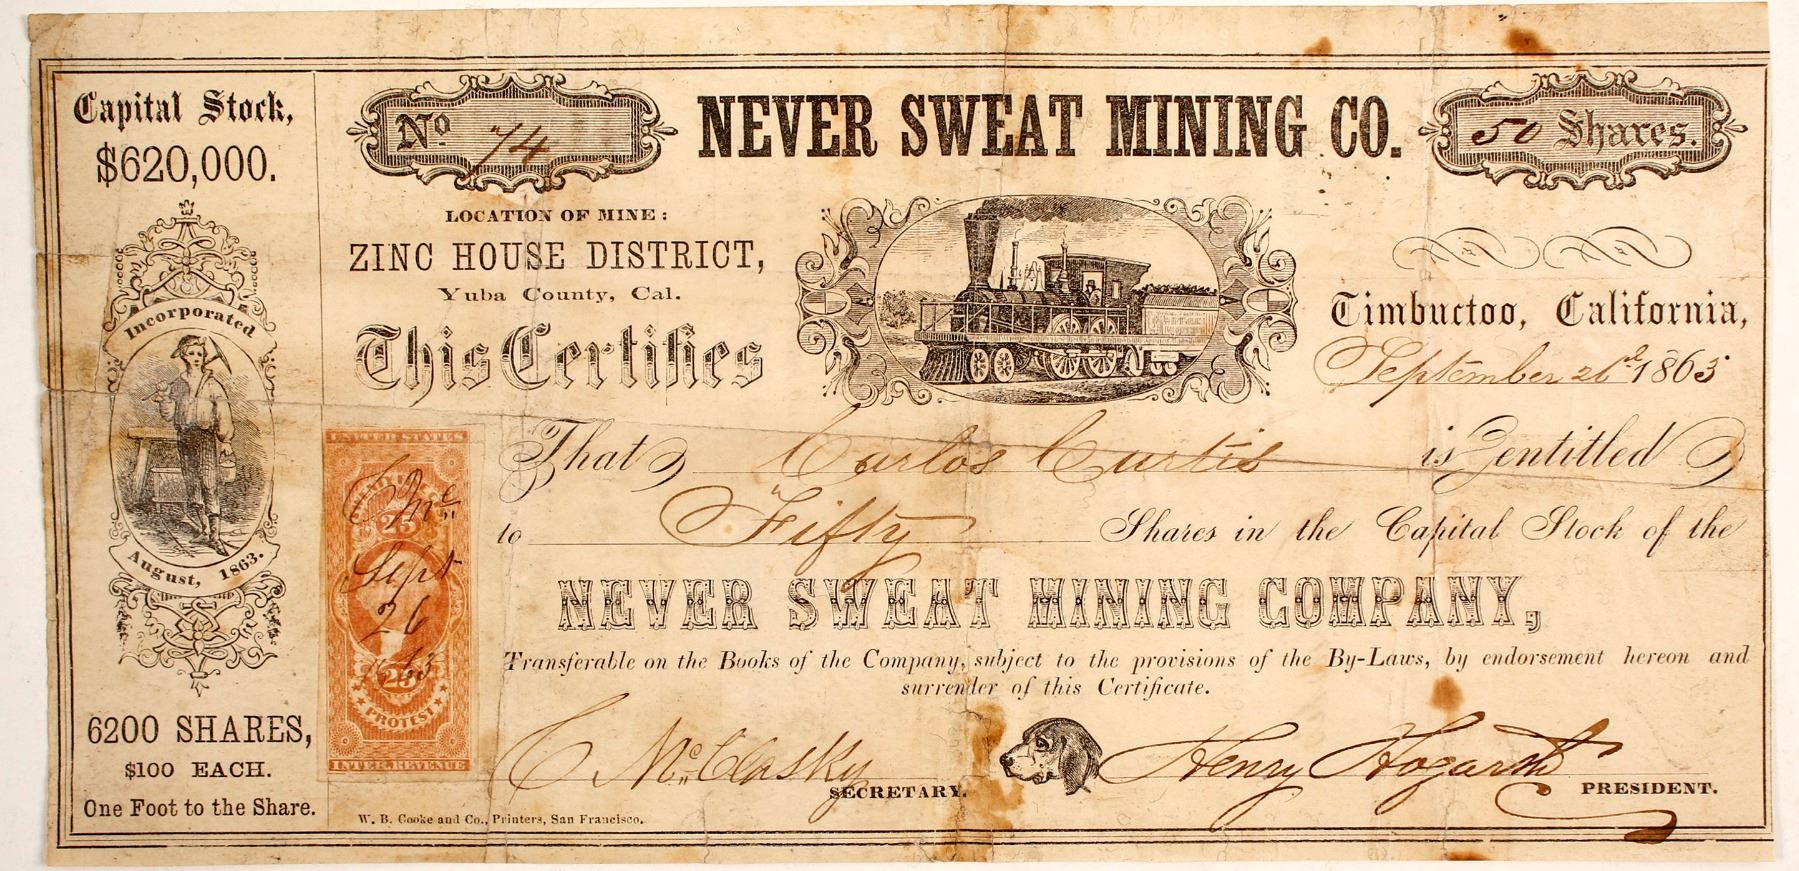 Capital Stock,
$620,000.
Incorporated
August, 1863.
6200 SHARES,
$100 EACH.
One Foot to the Share.
No. 74
NEVER SWEAT MINING CO.
50 Shares.
LOCATION OF MINE:
ZINC HOUSE DISTRICT,
Yuba County, Cal.
This Certifies
Timbuctoo, California,
September 26th 1863
That Carlos Curtis is entitled
to Fifty Shares in the Capital Stock of the
NEVER SWEAT MINING COMPANY,
Transferable on the Books of the Company, subject to the provisions of the By-Laws, by endorsement hereon and
surrender of this Certificate.
UNITED STATES
25
C Mc
Sept
26
1863
25
PROTEST
INTER. REVENUE
C McClasky
SECRETARY.
Henry Hogarth
PRESIDENT.
W. B. Cooke and Co., Printers, San Francisco.